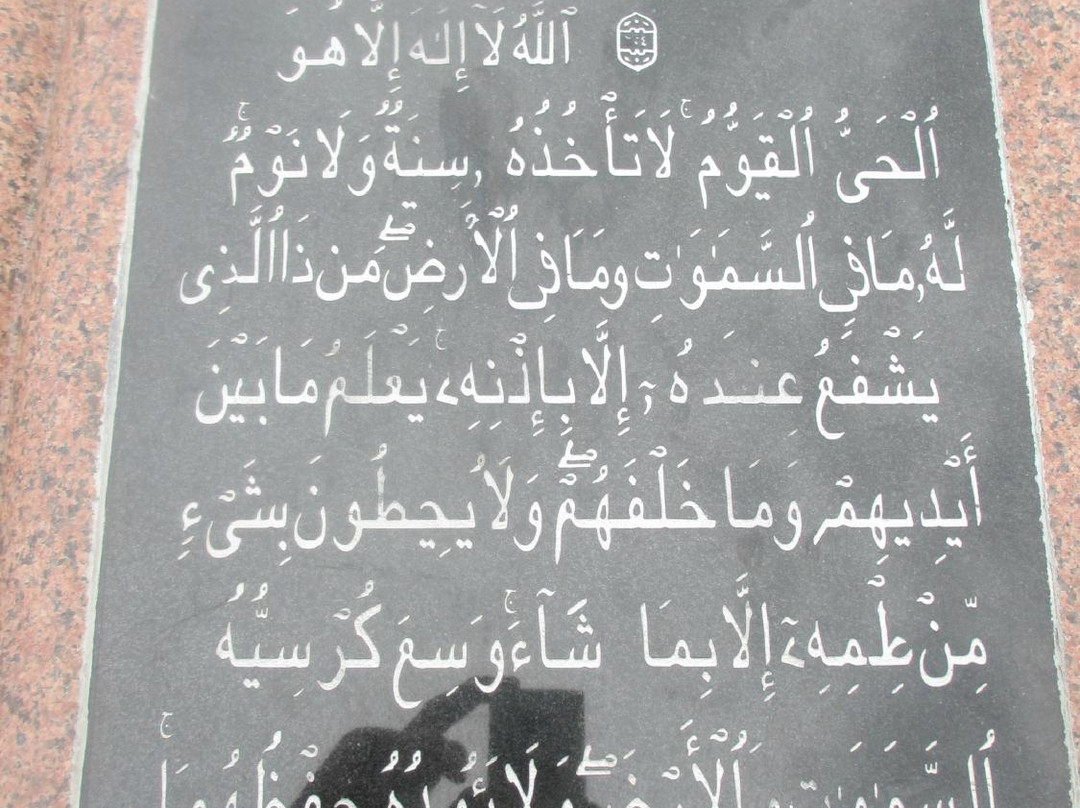 ٱللَّهُ لَآ إِلَـٰهَ إِلَّا هُوَ
ٱلْحَىُّ ٱلْقَيُّومُ ۚ لَا تَأْخُذُهُۥ سِنَةٌ وَلَا نَوْمٌ ۚ
لَّهُۥ مَا فِى ٱلسَّمَـٰوَٰتِ وَمَا فِى ٱلْأَرْضِ ۗ مَن ذَا ٱلَّذِى
يَشْفَعُ عِندَهُۥٓ إِلَّا بِإِذْنِهِۦ ۚ يَعْلَمُ مَا بَيْنَ
أَيْدِيهِمْ وَمَا خَلْفَهُمْ ۖ وَلَا يُحِطُونَ بِشَىْءٍ
مِّنْ طِْمِهِۦٓ إِلَّا بِمَا شَآءَ ۚ وَسِعَ كُرْسِيُّهُ
ٱلسَّمَـٰوَٰتِ وَٱلْأَرْضَ ۖ وَلَا يَـُٔودُهُۥ حِفْظُهُمَا ۚ